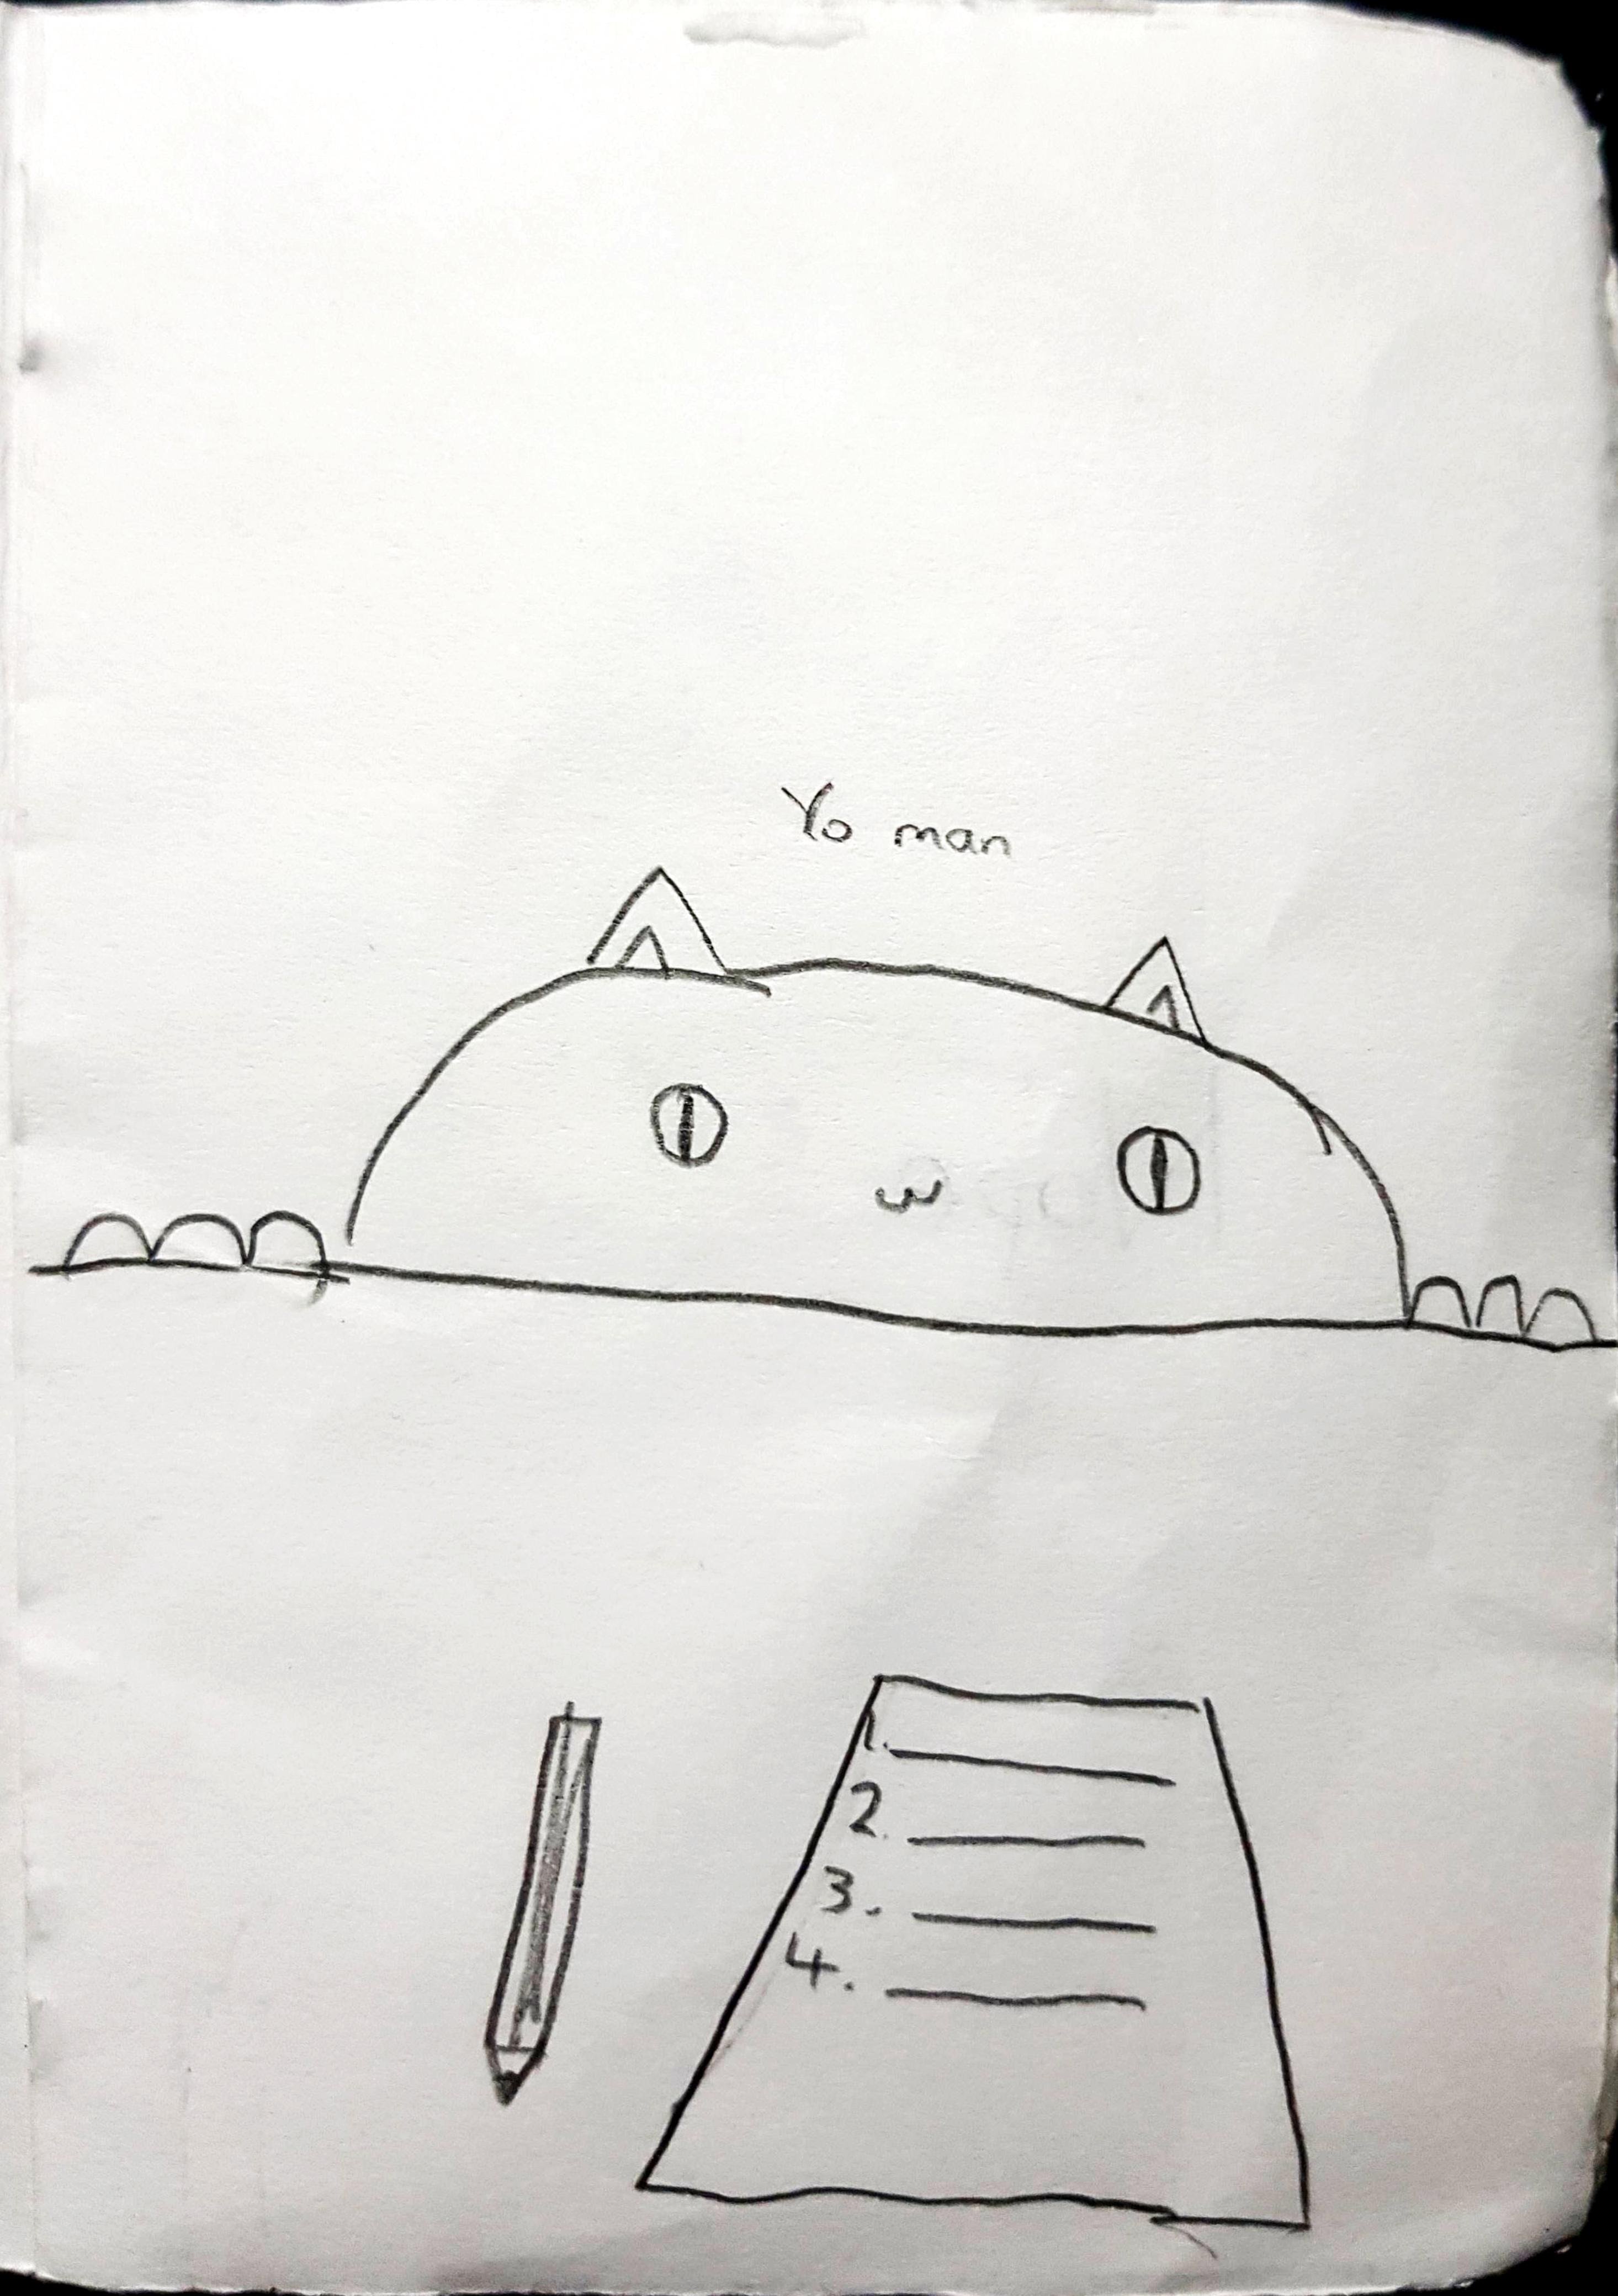 Yo man
1.
2.
3.
4.